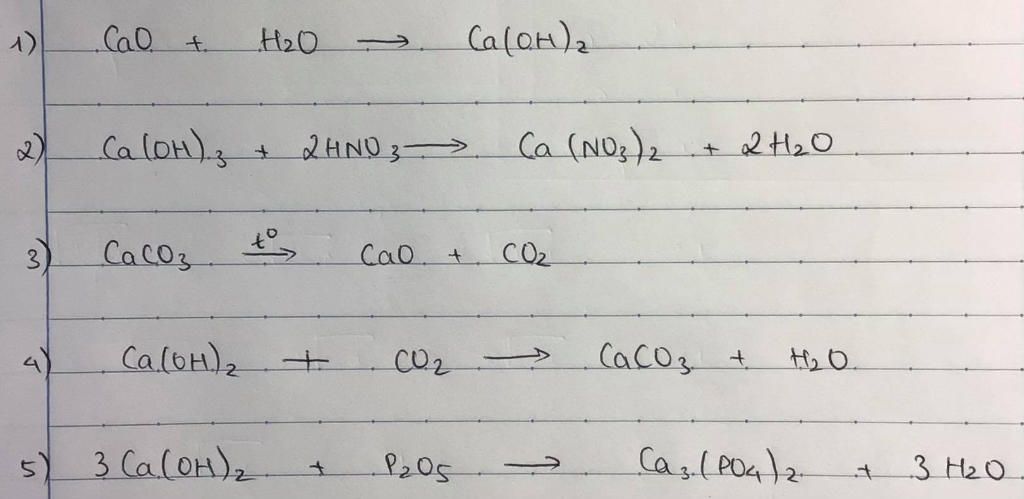 1) CaO + H2O → Ca(OH)2
2) Ca(OH)3 + 2HNO3 → Ca(NO3)2 + 2H2O
3) CaCO3 t° → CaO + CO2
4) Ca(OH)2 + CO2 → CaCO3 + H2O
5) 3Ca(OH)2 + P2O5 → Ca3(PO4)2 + 3H2O